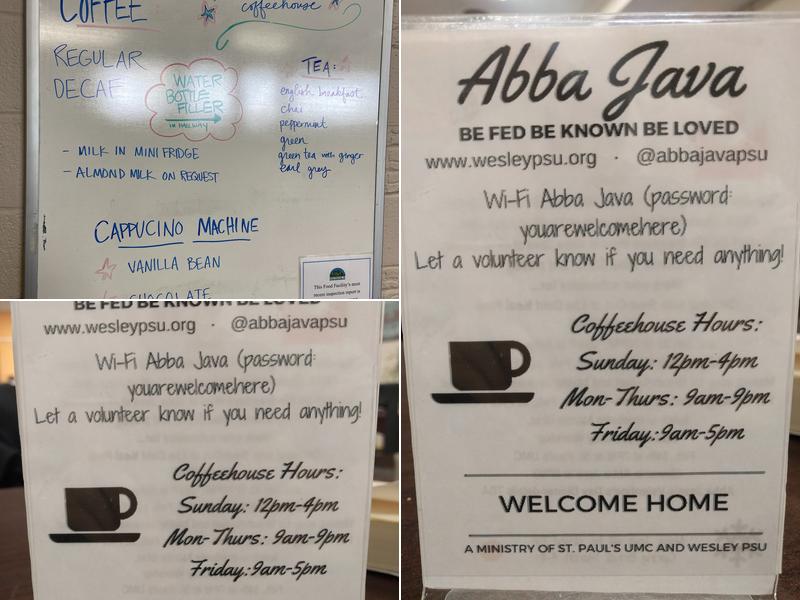 COFFEE
coffeehouse
REGULAR
DECAF
WATER
BOTTLE
FILLER
IN HALLWAY
TEA:
english breakfast
chai
peppermint
green
green tea with ginger
earl grey
- MILK IN MINI FRIDGE
- ALMOND MILK ON REQUEST
CAPPUCINO MACHINE
VANILLA BEAN
CHOCOLATE
This Food Facility's most
recent inspection report is
BE FED BE KNOWN BE LOVED
www.wesleypsu.org · @abbajavapsu
Wi-Fi Abba Java (password:
youarewelcomehere)
Let a volunteer know if you need anything!
Coffeehouse Hours:
Sunday: 12pm-4pm
Mon-Thurs: 9am-9pm
Friday:9am-5pm
Abba Java
BE FED BE KNOWN BE LOVED
www.wesleypsu.org · @abbajavapsu
Wi-Fi Abba Java (password:
youarewelcomehere)
Let a volunteer know if you need anything!
Coffeehouse Hours:
Sunday: 12pm-4pm
Mon-Thurs: 9am-9pm
Friday:9am-5pm
WELCOME HOME
A MINISTRY OF ST. PAUL'S UMC AND WESLEY PSU